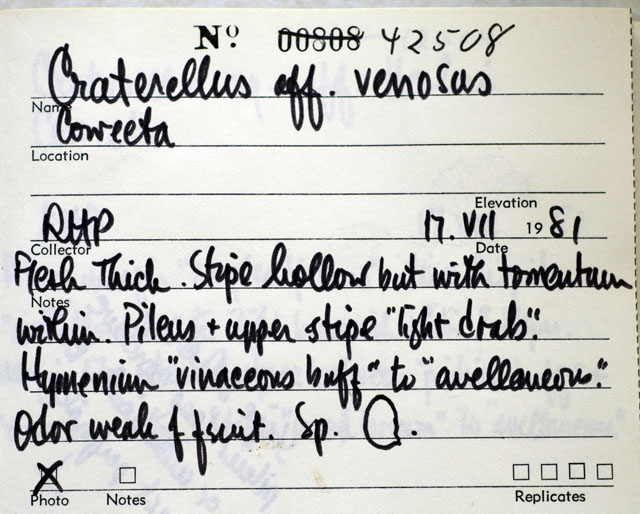 Nº 00808 42508
Craterellus aff. venosus
Name
Coweeta
Location
Elevation
RHP 17. VII 1981
Collector Date
Flesh Thick. Stipe hollow but with tomentum
Notes
within. Pileus + upper stipe "light drab".
Hymenium "vinaceous buff" to "avellaneous."
Odor weak of fruit. Sp.
Photo Notes Replicates